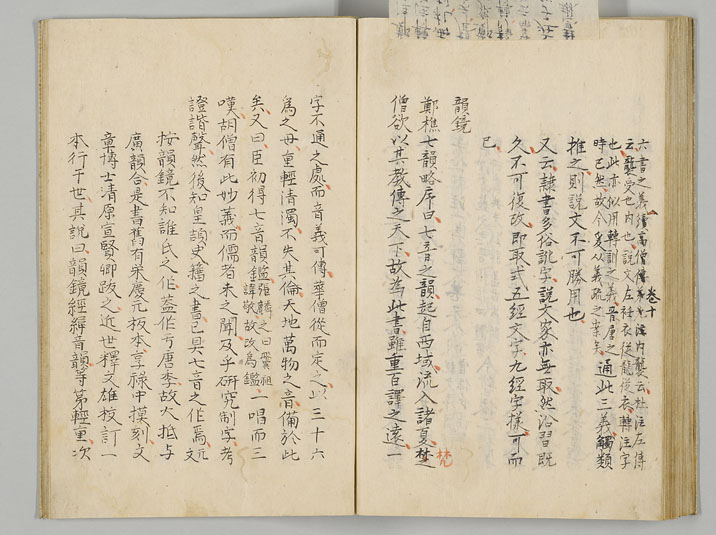 六書之義續高僧傳卷十
云襲受也内也説文左衽衣從龍從衣轉注字
也此亦似用轉訓之義晋唐之
時已然故今多从義疏之案矣 通此三義觸類
推之則説文不可勝用也
又云隸書多俗訛字説文家亦無取然沿習既
久不可復改即取式五經文字九經字樣可而
已
韻鏡
鄭樵七韻略序曰七音之韻起自西域流入諸夏梵
僧欲以其教傳之天下故為此書雖重百譯之遠一
字不通之處而音義可傳華僧從而定之以三十六
為之母重輕清濁不失其倫天地萬物之音備於此
矣又曰臣初得七音韻鑑 一唱而三
嘆胡僧有此妙義而儒者未之聞及乎研究制字考
證諧聲然後知皇頡史籀之書已具七音之作焉
按韻鏡不知誰氏之作蓋作于唐季故大抵与
廣韻合是書舊有永 板本享禄中摸刻文
章博士清原宣賢卿跋之近世釋文雄校訂一
本行于世其説曰韻鏡經緯音韻等第輕重次